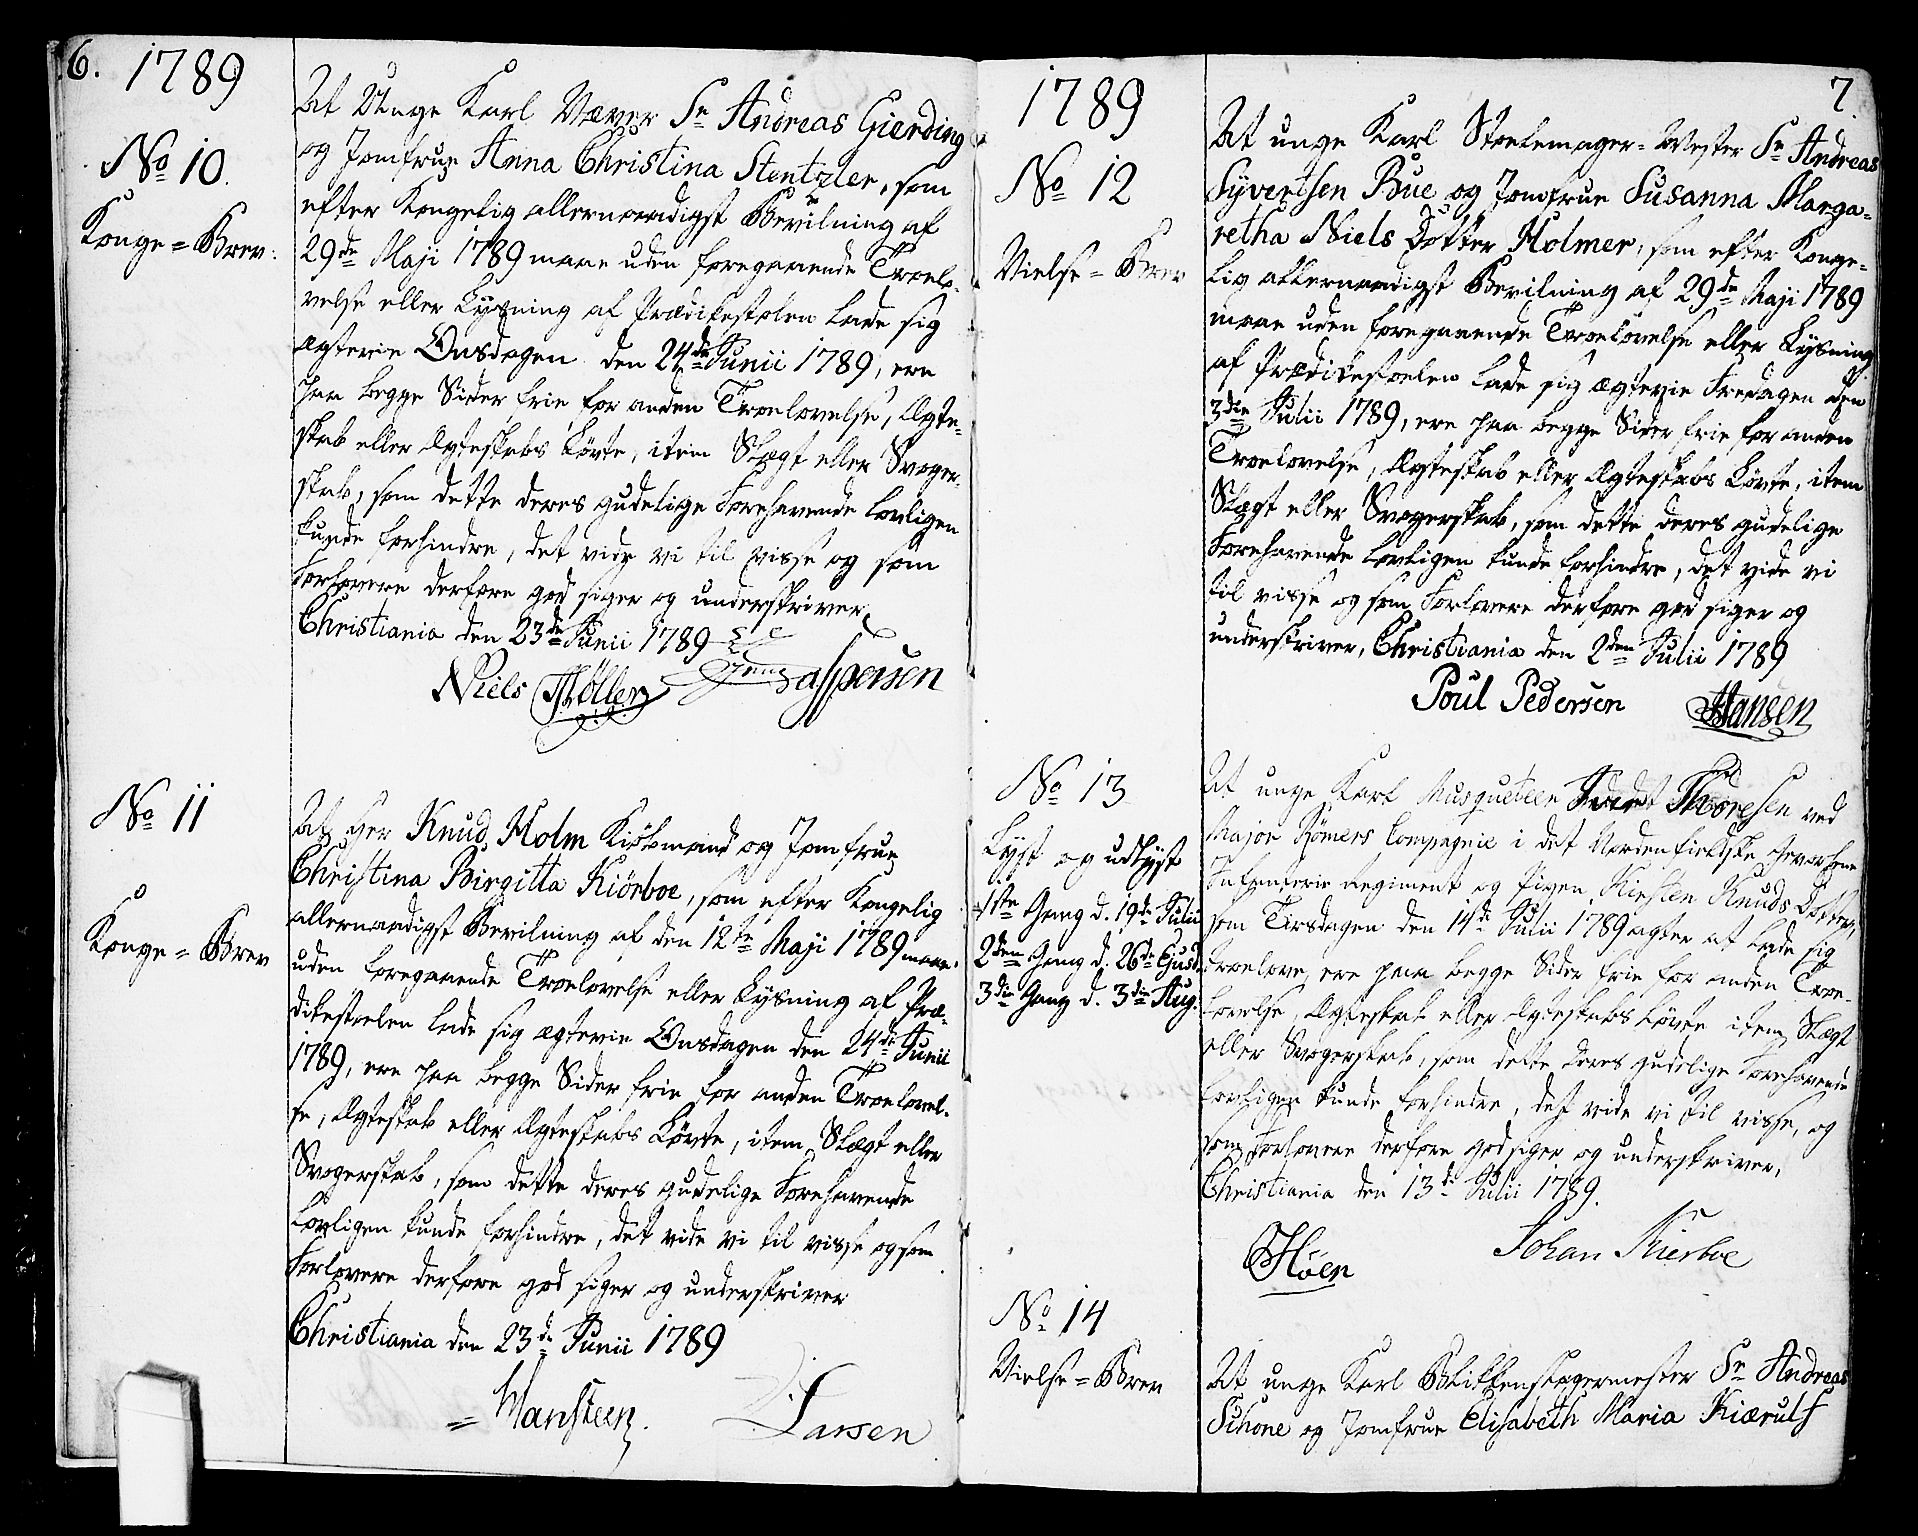 6. 1789
No 10.
Konge=Brev:
At Unge Karl Væver Sr Andreas Gierding
og Jomfrue Anna Christina Stentzler, som
efter Kongelig allernaadigst Bevilning af
29de Maji 1789 maae uden foregaaende Troelo-
velse eller Lysning af Prædikestolen lade sig
ægtevie Onsdagen den 24de Junii 1789, ere
paa begge Sider frie for anden Troelovelse, Ægte-
skab eller Ægteskabs Løvte, item Slægt eller Svoger-
skab, som dette deres gudelige Forehavende lovligen
kunde forhindre, det vide vi til visse og som
Forlovere derfore god siger og underskriver
Christiania den 23de Junii 1789
Niels Møller Jaspersen
No 11
Konge=Brev
At Her Knud Holm Kiöbmand og Jomfrue
Christina Birgitta Kiörboe, som efter Kongelig
allernaadigst Bevilning af den 12te Maji 1789 maae
uden foregaaende Troelovelse eller Lysning af Præ-
dikestoelen lade sig ægtevie Onsdagen den 24de Junii
1789, ere paa begge Sider frie for anden Troelovel-
se, Ægteskab eller Ægteskabs Lövte, item Slægt eller
Svogerskab, som dette deres gudelige Forehavende
lovligen kunde forhindre, det vide vi til visse og som
Forlovere derfore god siger og underskriver
Christiania den 23de Junii 1789
Hansteen. Larsen
1789
No 12
Vielse=Brev
7.
At unge Karl Stoelemager=Mester Sr Andreas
Syvertsen Bue og Jomfrue Susanna Marga-
retha Niels Dotter Holmer, som efter Konge-
lig allernaadigst Bevilning af 29de Maji 1789
maae uden foregaaende Troelovelse eller Lysning
af Prædikestoelen lade sig ægtevie Fredagen den
3die Julii 1789, ere paa begge Sider frie for anden
Troelovelse, Ægteskab eller Ægteskabs Lövte, item
Slægt eller Svogerskab, som dette deres gudelige
Forehavende lovligen kunde forhindre, det vide vi
til visse og som Forlovere derfore god siger og
underskriver, Christiania den 2den Julii 1789
Poul Pedersen Hansen
No 13
Lyst og udlyst
1ste Gang d. 19de Julii
2den Gang d. 26de Ejusd.
3die Gang d. 3die Aug.
At unge Karl Musqueteer Thoresen ved
Major Römers Compagnie i det Nordenfieldske gevorbene
Infanterie Regiment og Pigen Kirsten Knuds Dotter,
som Tirsdagen den 14de Julii 1789 agter at lade sig
troelove, ere paa begge Sider frie for anden Troe-
lovelse, Ægteskab eller Ægteskabs Lövte item Slægt
eller Svogerskab, som dette deres gudelige Forehavende
lovligen kunde forhindre, det vide vi til visse, og
som Forlovere derfore god siger og underskriver,
Christiania den 13de Julii 1789.
Höen Johan Kierboe
No 14
Vielse=Brev
At unge Karl Blikkenslagermester Sr Andreas
Schone og Jomfrue Elisabeth Maria Kiærulf